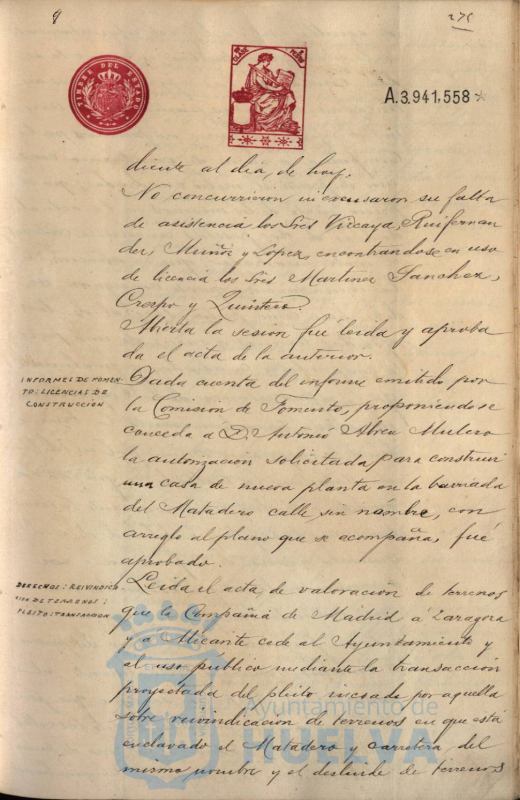 9
275
TIMBRE DEL ESTADO
A.3,941,558
diente al dia, de hoy.
No concurrieron ni excusaron su falta
de asistencia los Sres Vizcaya, Ruifernan
dez, Muñiz y Lopez, encontrandose en uso
de licencia los Sres Martinez Sanchez,
Crespo y Quintero.
Abierta la sesion fué leida y aproba
da el acta de la anterior.
INFORMES DE FOMEN-
TO: LICENCIAS DE
CONSTRUCCIÓN
Dada cuenta del informe emitido por
la Comision de Fomento, proponiendo se
conceda a D. Antonio Abreu Mulero
la autorización solicitada para construir
una casa de nueva planta en la barriada
del Matadero calle sin nombre, con
arreglo al plano que se acompaña, fué
aprobado.
DERECHOS: REIVINDICA
CION DE TERRENOS:
PLEITO: TRANSACCION
Leida el acta de valoración de terrenos
que la Compañia de Madrid á Zaragoza
y a Alicante cede al Ayuntamiento y
al uso publico mediante la transacción
proyectada del pleito incoado por aquella
sobre reivindicacion de terrenos en que está
enclavado el Matadero y carretera del
mismo nombre y el deslinde de terrenos
Ayuntamiento de
HUELVA